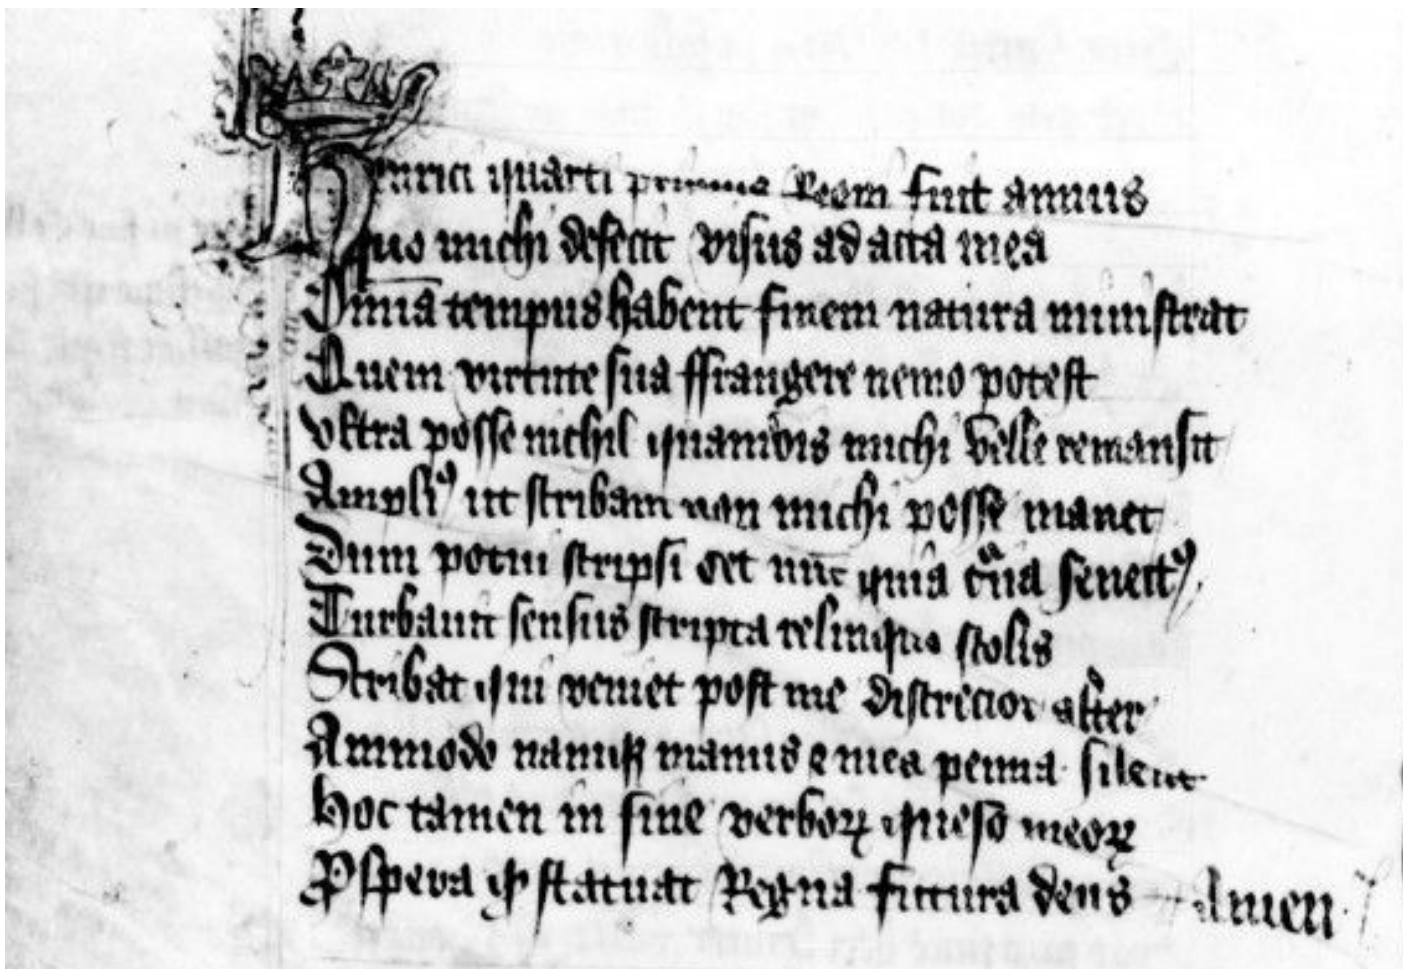 Henrici quarti primus Regni fuit annus
Quo michi defecit visus ad acta mea
Oīnia tempus habent finem natura ministrat
Quem virtute sua ffrangere nemo potest
Vltra posse nichil quamvis michi velle remansit
Ampliꝰ ut scribam non michi posse manet
Dum potui scripsi set nūc quia cͣua senectꝰ
Turbauit sensus scripta relinquo scolis
Scribat qui veniet post me discrecior alter
Ammodo namqꝫ manus et mea penna silent
Hoc tamen in fine verboꝝ queso meoꝝ
Ꝓspera qͥ statuat Regna futura deus Amen